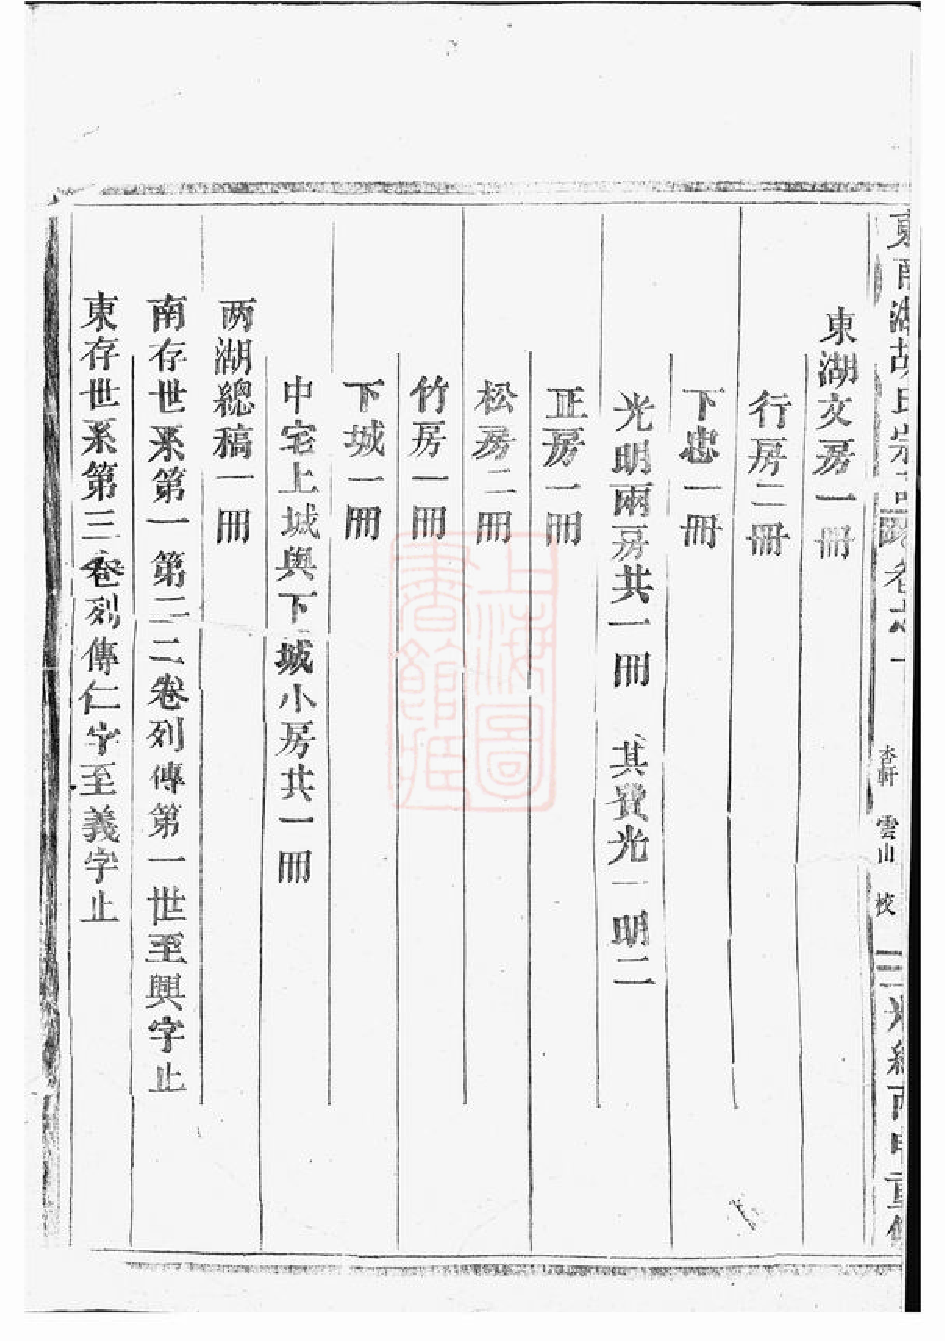 東湖文房一冊
行房二冊
下忠一冊
光明兩房共一冊　其寶光一明二
正房一冊
松房二冊
竹房一冊
下城一冊
中宅上城與下城小房共一冊
两湖總稿一冊
南存世系第一第二二卷列傳第一世至興字止
東存世系第三卷列傳仁字至義字止
上海圖書館藏